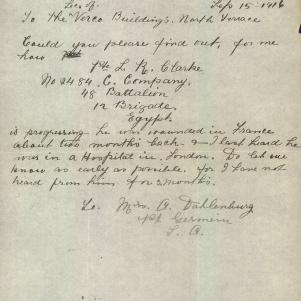 Sep 15-1916
To The Verco Buildings. North Terrace
Could you please find out, for me
how
Pte L. R. Clarke
No 2484. C. Company.
48 Battalion
12 Brigade.
Egypt.
is progressing he was wounded in France
about two months back. & I last heard he
was in a Hospital in London. Do let me
know as early as possible. for I have not
heard from him for 2 months.
Mrs A. Dahlenburg
Pt Germein
S. A.